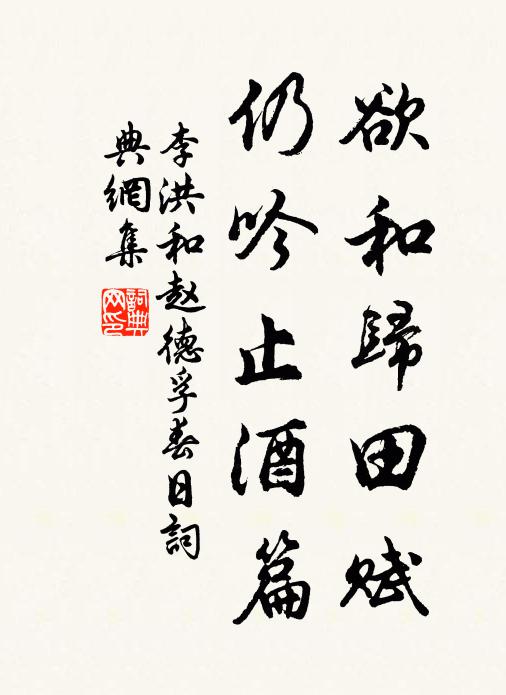 欲和歸田賦
仍吟止酒篇
李洪和赵德孚春日詞
典網集
詞典網印